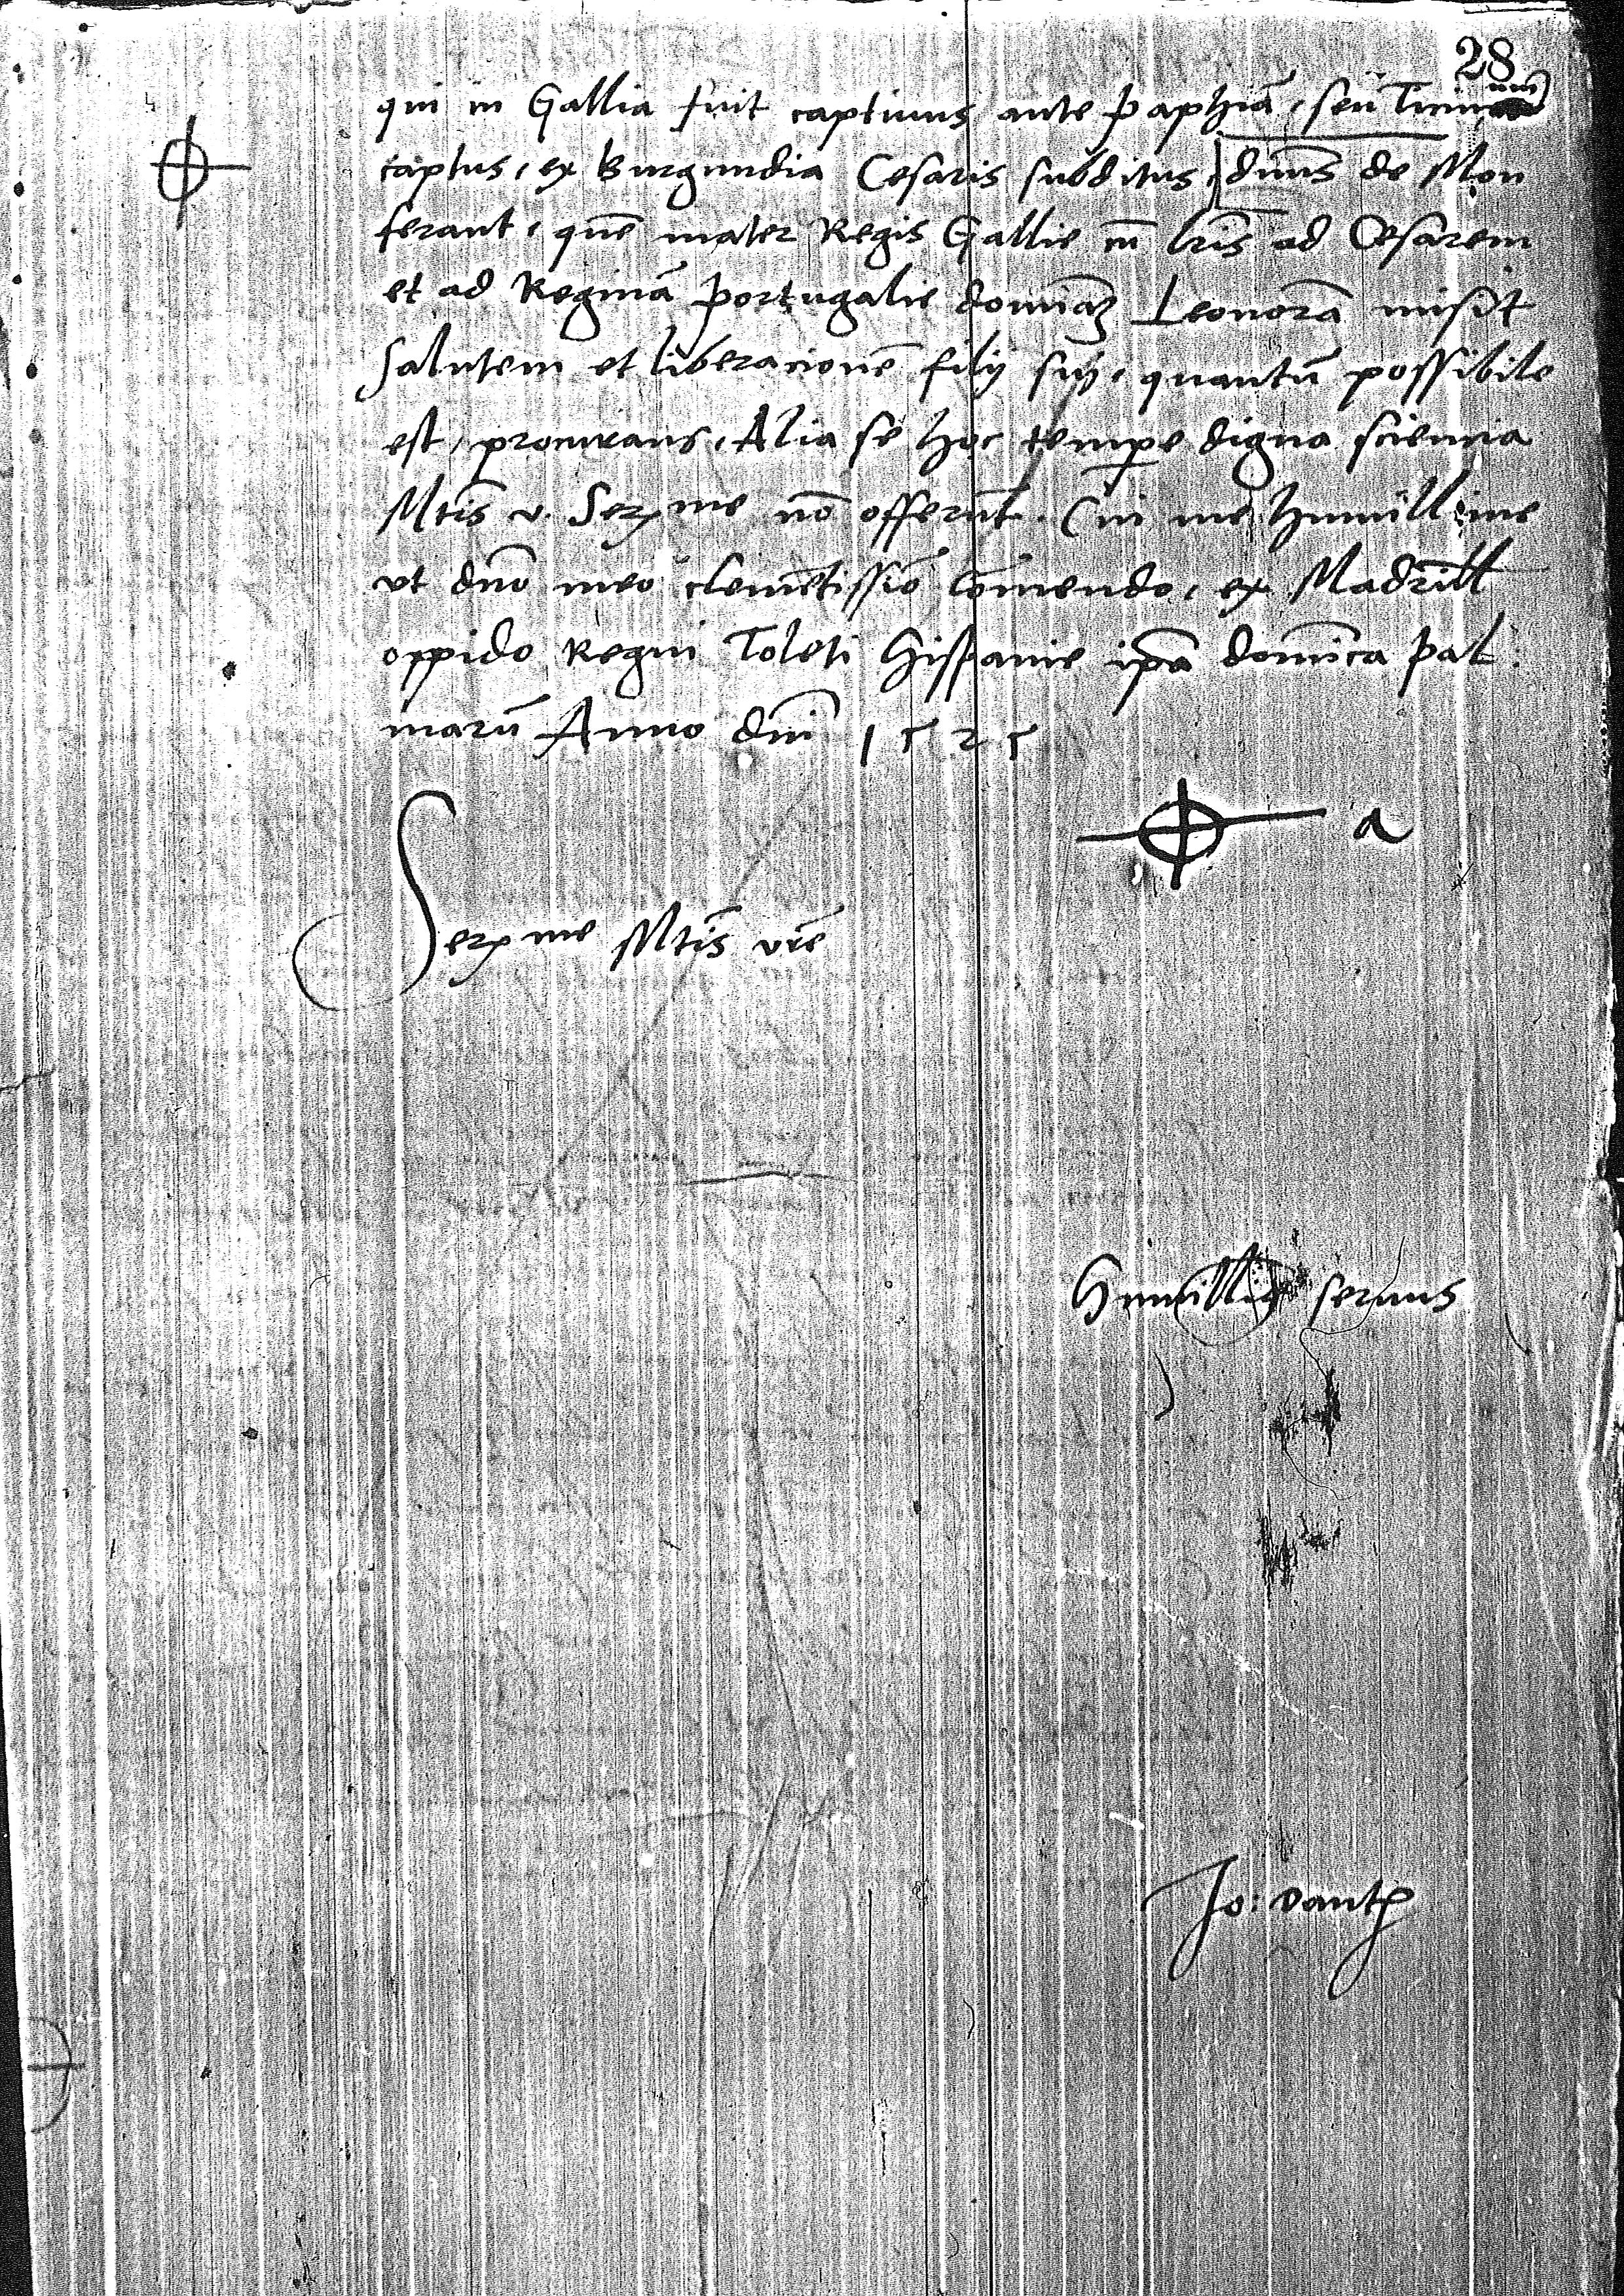 28
qui in Gallia fuit captiuus ante Paphiã, seu Ticinum
captus, ex Burgundia Cesaris subditus, dnũs de Mon
ferant, quẽ mater Regis Gallie in lrĩs ad Cesarem
et ad Reginã Portugalie dominã Leonorã misit
Salutem et liberacionẽ filij sui, quantũ possibile
est, procurans, Alia se hoc tempe digna sciencia
Mtĩs v. Serme nõ offerũt. Cui me humillime
vt dnõ meo clemẽtissiõ cõmendo, ex Madrill
oppido Regni Toleti Hispanie ipã domĩca Pal
marũ Anno dnĩ 1525
a
Serme Mtĩs vrẽ
Humillis seruus
Jo: Dant